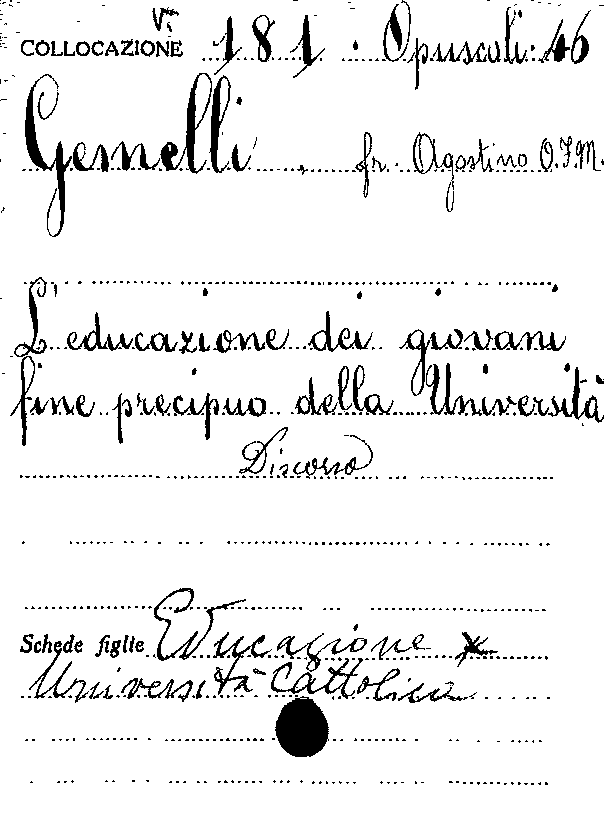 COLLOCAZIONE 181. Opuscoli: 46
Gemelli, fr. Agostino O.F.M.
L'educazione dei giovani
fine precipuo della Università
Discorso
Schede figlie Educazione x
Università Cattolica